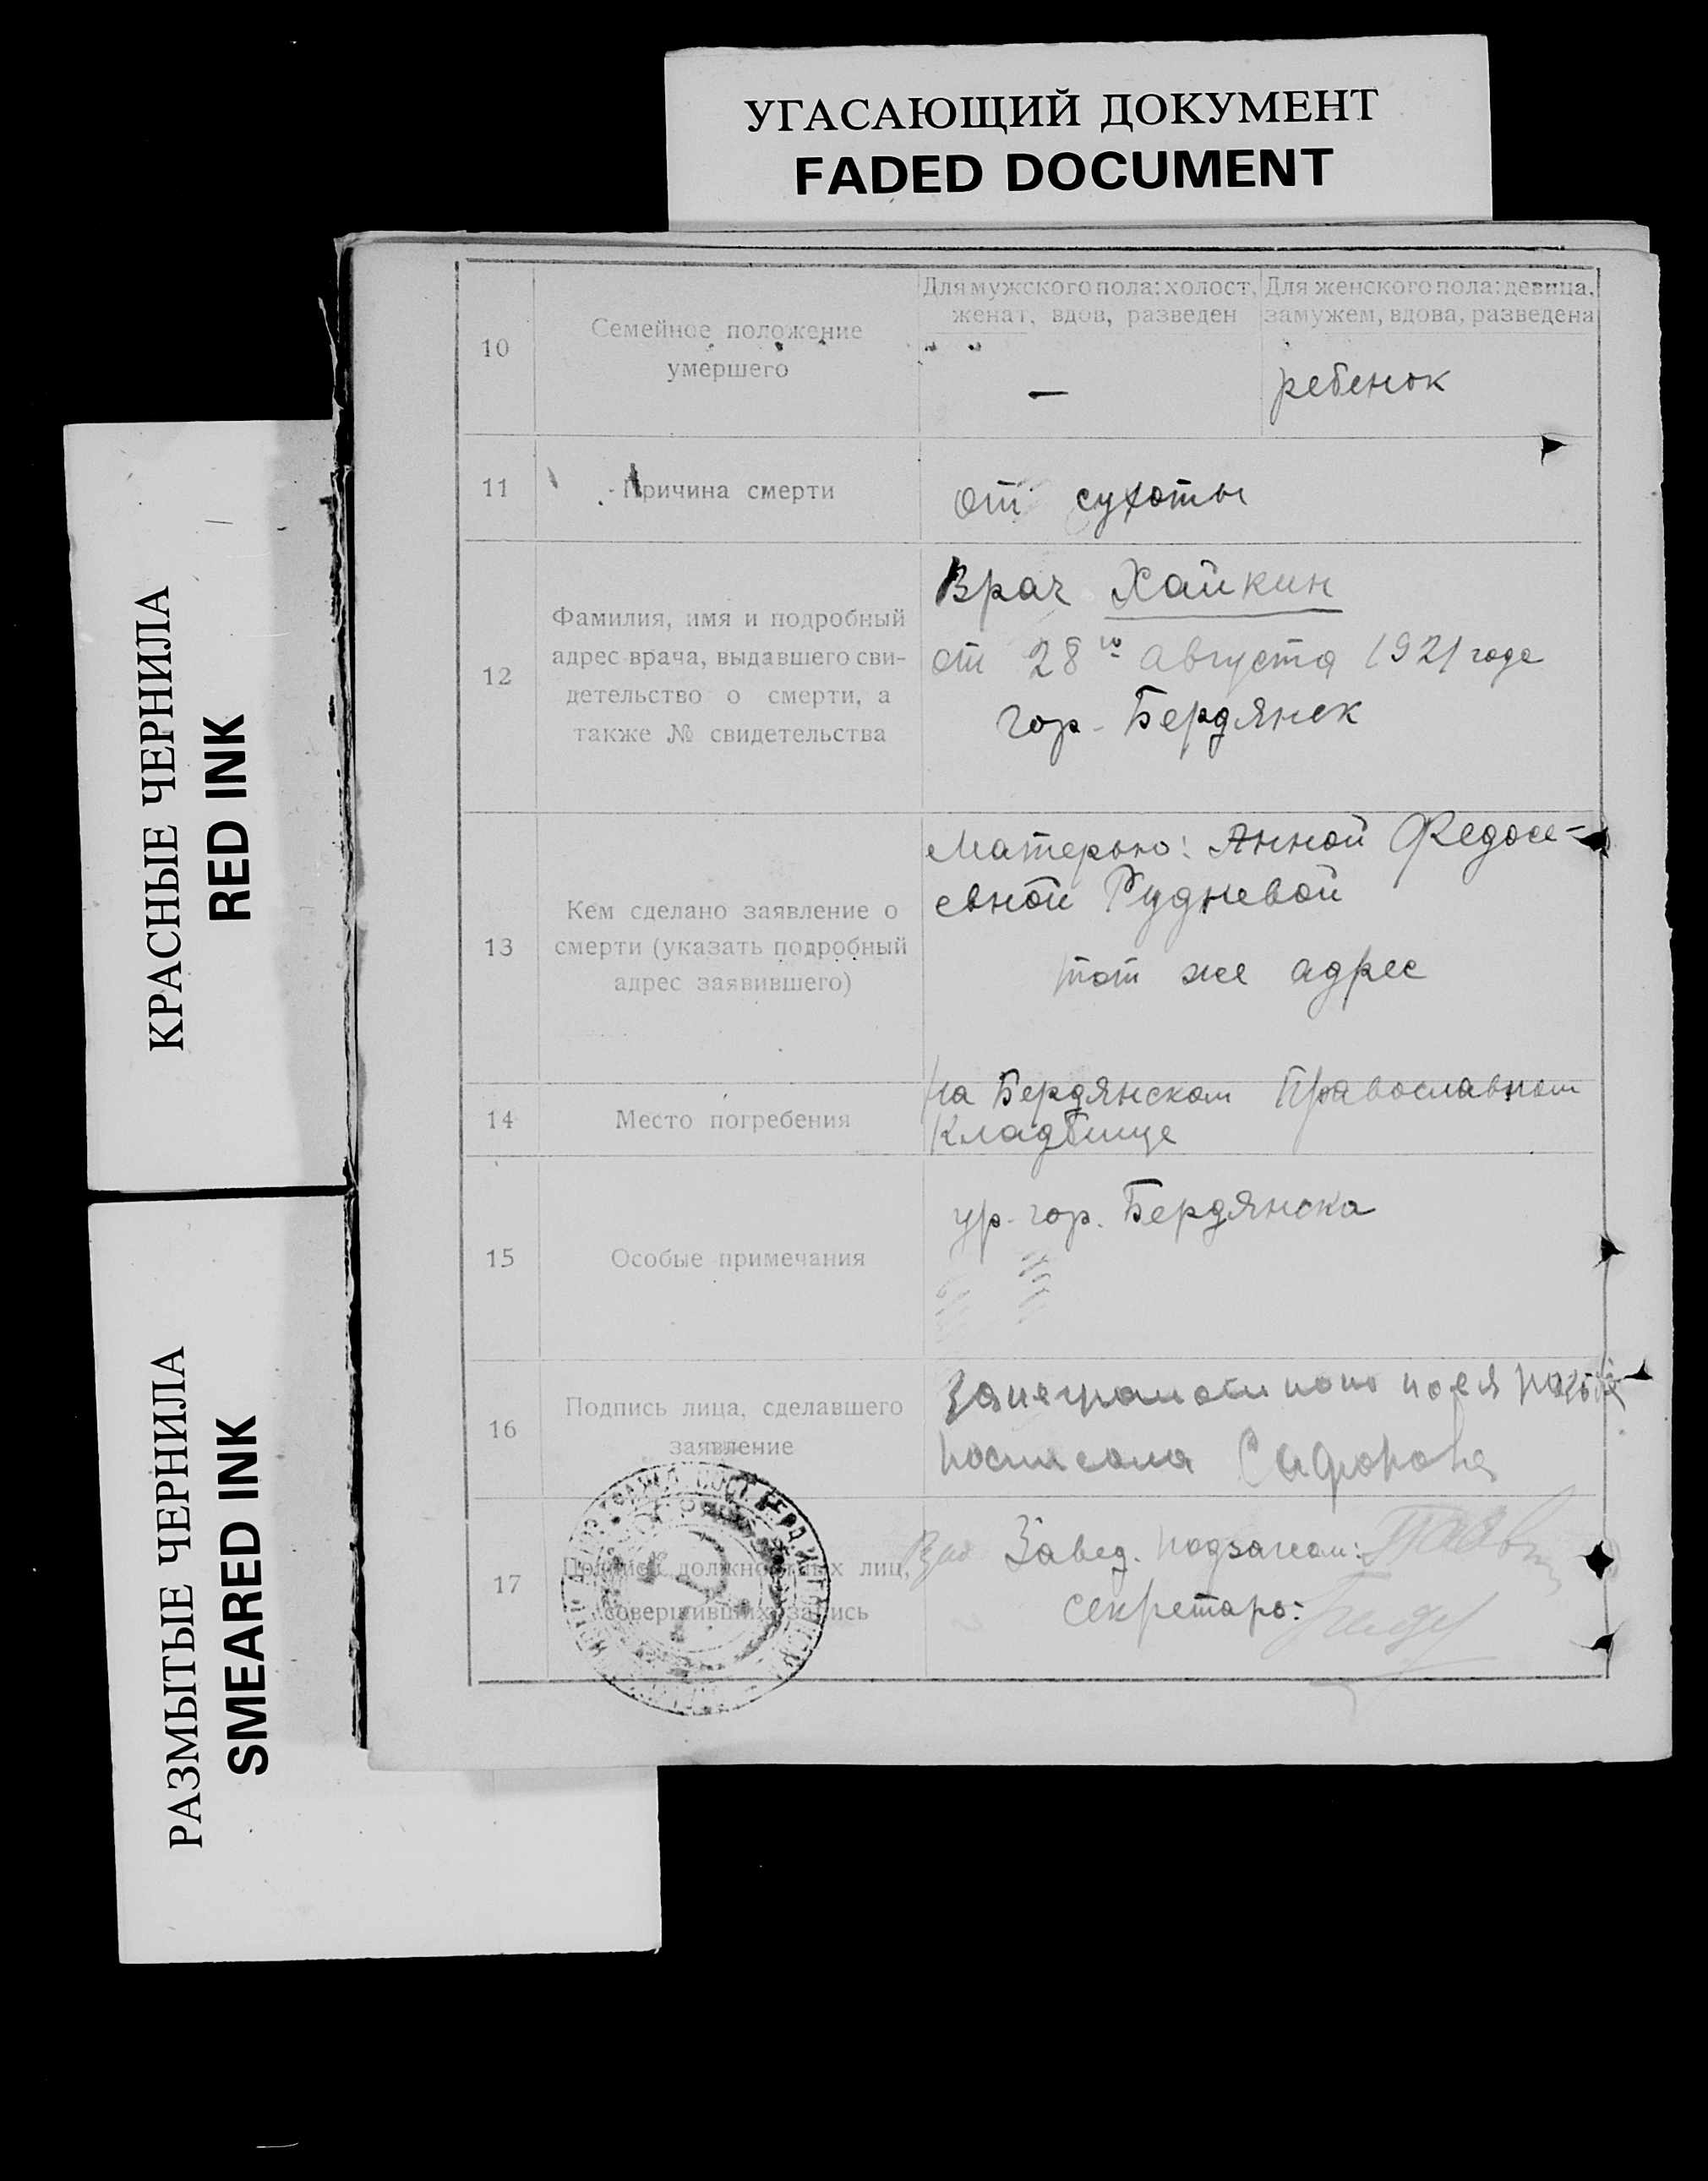 УГАСАЮЩИЙ ДОКУМЕНТ
FADED DOCUMENT
КРАСНЫЕ ЧЕРНИЛА
RED INK
РАЗМЫТЫЕ ЧЕРНИЛА
SMEARED INK
10
Семейное положение
умершего
Для мужского пола: холост,
женат, вдов, разведен
—
Для женского пола: девица,
замужем, вдова, разведена
ребенок
11
Причина смерти
от сухоты
12
Фамилия, имя и подробный
адрес врача, выдавшего сви-
детельство о смерти, а
также № свидетельства
Врач Хайкин
от 28го Августа 1921 года
гор. Бердянск
13
Кем сделано заявление о
смерти (указать подробный
адрес заявившего)
Матерью: Анной Федосе-
евной Рудневой
тот же адрес
14
Место погребения
на Бердянском Православном
Кладбище
15
Особые примечания
ур. гор. Бердянска
16
Подпись лица, сделавшего
заявление
За неграмотною по ея
Сафронова
17
Подписи должностных лиц,
совершивших запись
Завед. подзагсом:
Секретарь: